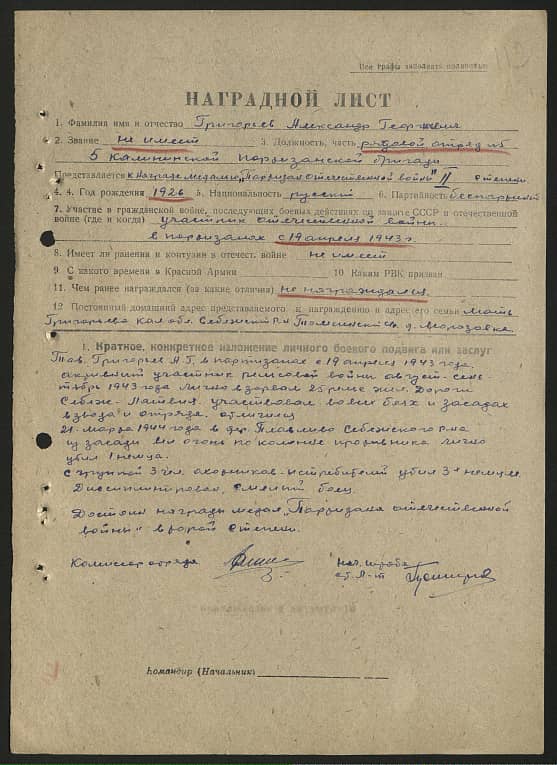 Все графы заполнять полностью
НАГРАДНОЙ ЛИСТ
1. Фамилия имя и отчество Григорьев Александр Георгиевич
2. Звание не имеет 3. Должность, часть рядовой отряд №5
5 Калининской партизанской бригады
Представляется к награде медалью „Партизан отечественной войны" II степени
4. 4. Год рождения 1926 5. Национальность русский 6. Партийность беспартийный
7. Участие в гражданской войне, последующих боевых действиях по защите СССР и отечественной
войне (где и когда) участник отечественной войны
в партизанах с 19 апреля 1943 г.
8. Имеет ли ранения и контузии в отечест. войне не имеет
9 С какого времени в Красной Армии 10. Каким РВК призван
11. Чем ранее награждался (за какие отличия) не награждался
12 Постоянный домашний адрес представляемого к награждению и адрес его семьи Мать
Григорьева Кал. обл. Себежский р-н Томсинский с/с. д. Морозовка
1. Краткое, конкретное изложение личного боевого подвига или заслуг
Тов. Григорьев А.Г. в партизанах с 19 апреля 1943 года,
активный участник рельсовой войны август-сен-
тябрь 1943 года лично взорвал 25 рельс жел. дороги
Себеж-Латвия. участвовал во всех боях и засадах
взвода и отряда.
21 марта 1944 года в дер. Себежского р-на
из засады вел огонь по колонне противника лично
убил 1 немца.
с группой 3 чел. охотников-истребителей убил 3х немцев.
Дисциплинирован, смелый боец.
Достоин награды медали „Партизана отечественной
войны" второй степени.
Комиссар отряда нач. штаба
ст. л-т
Командир (Начальник)